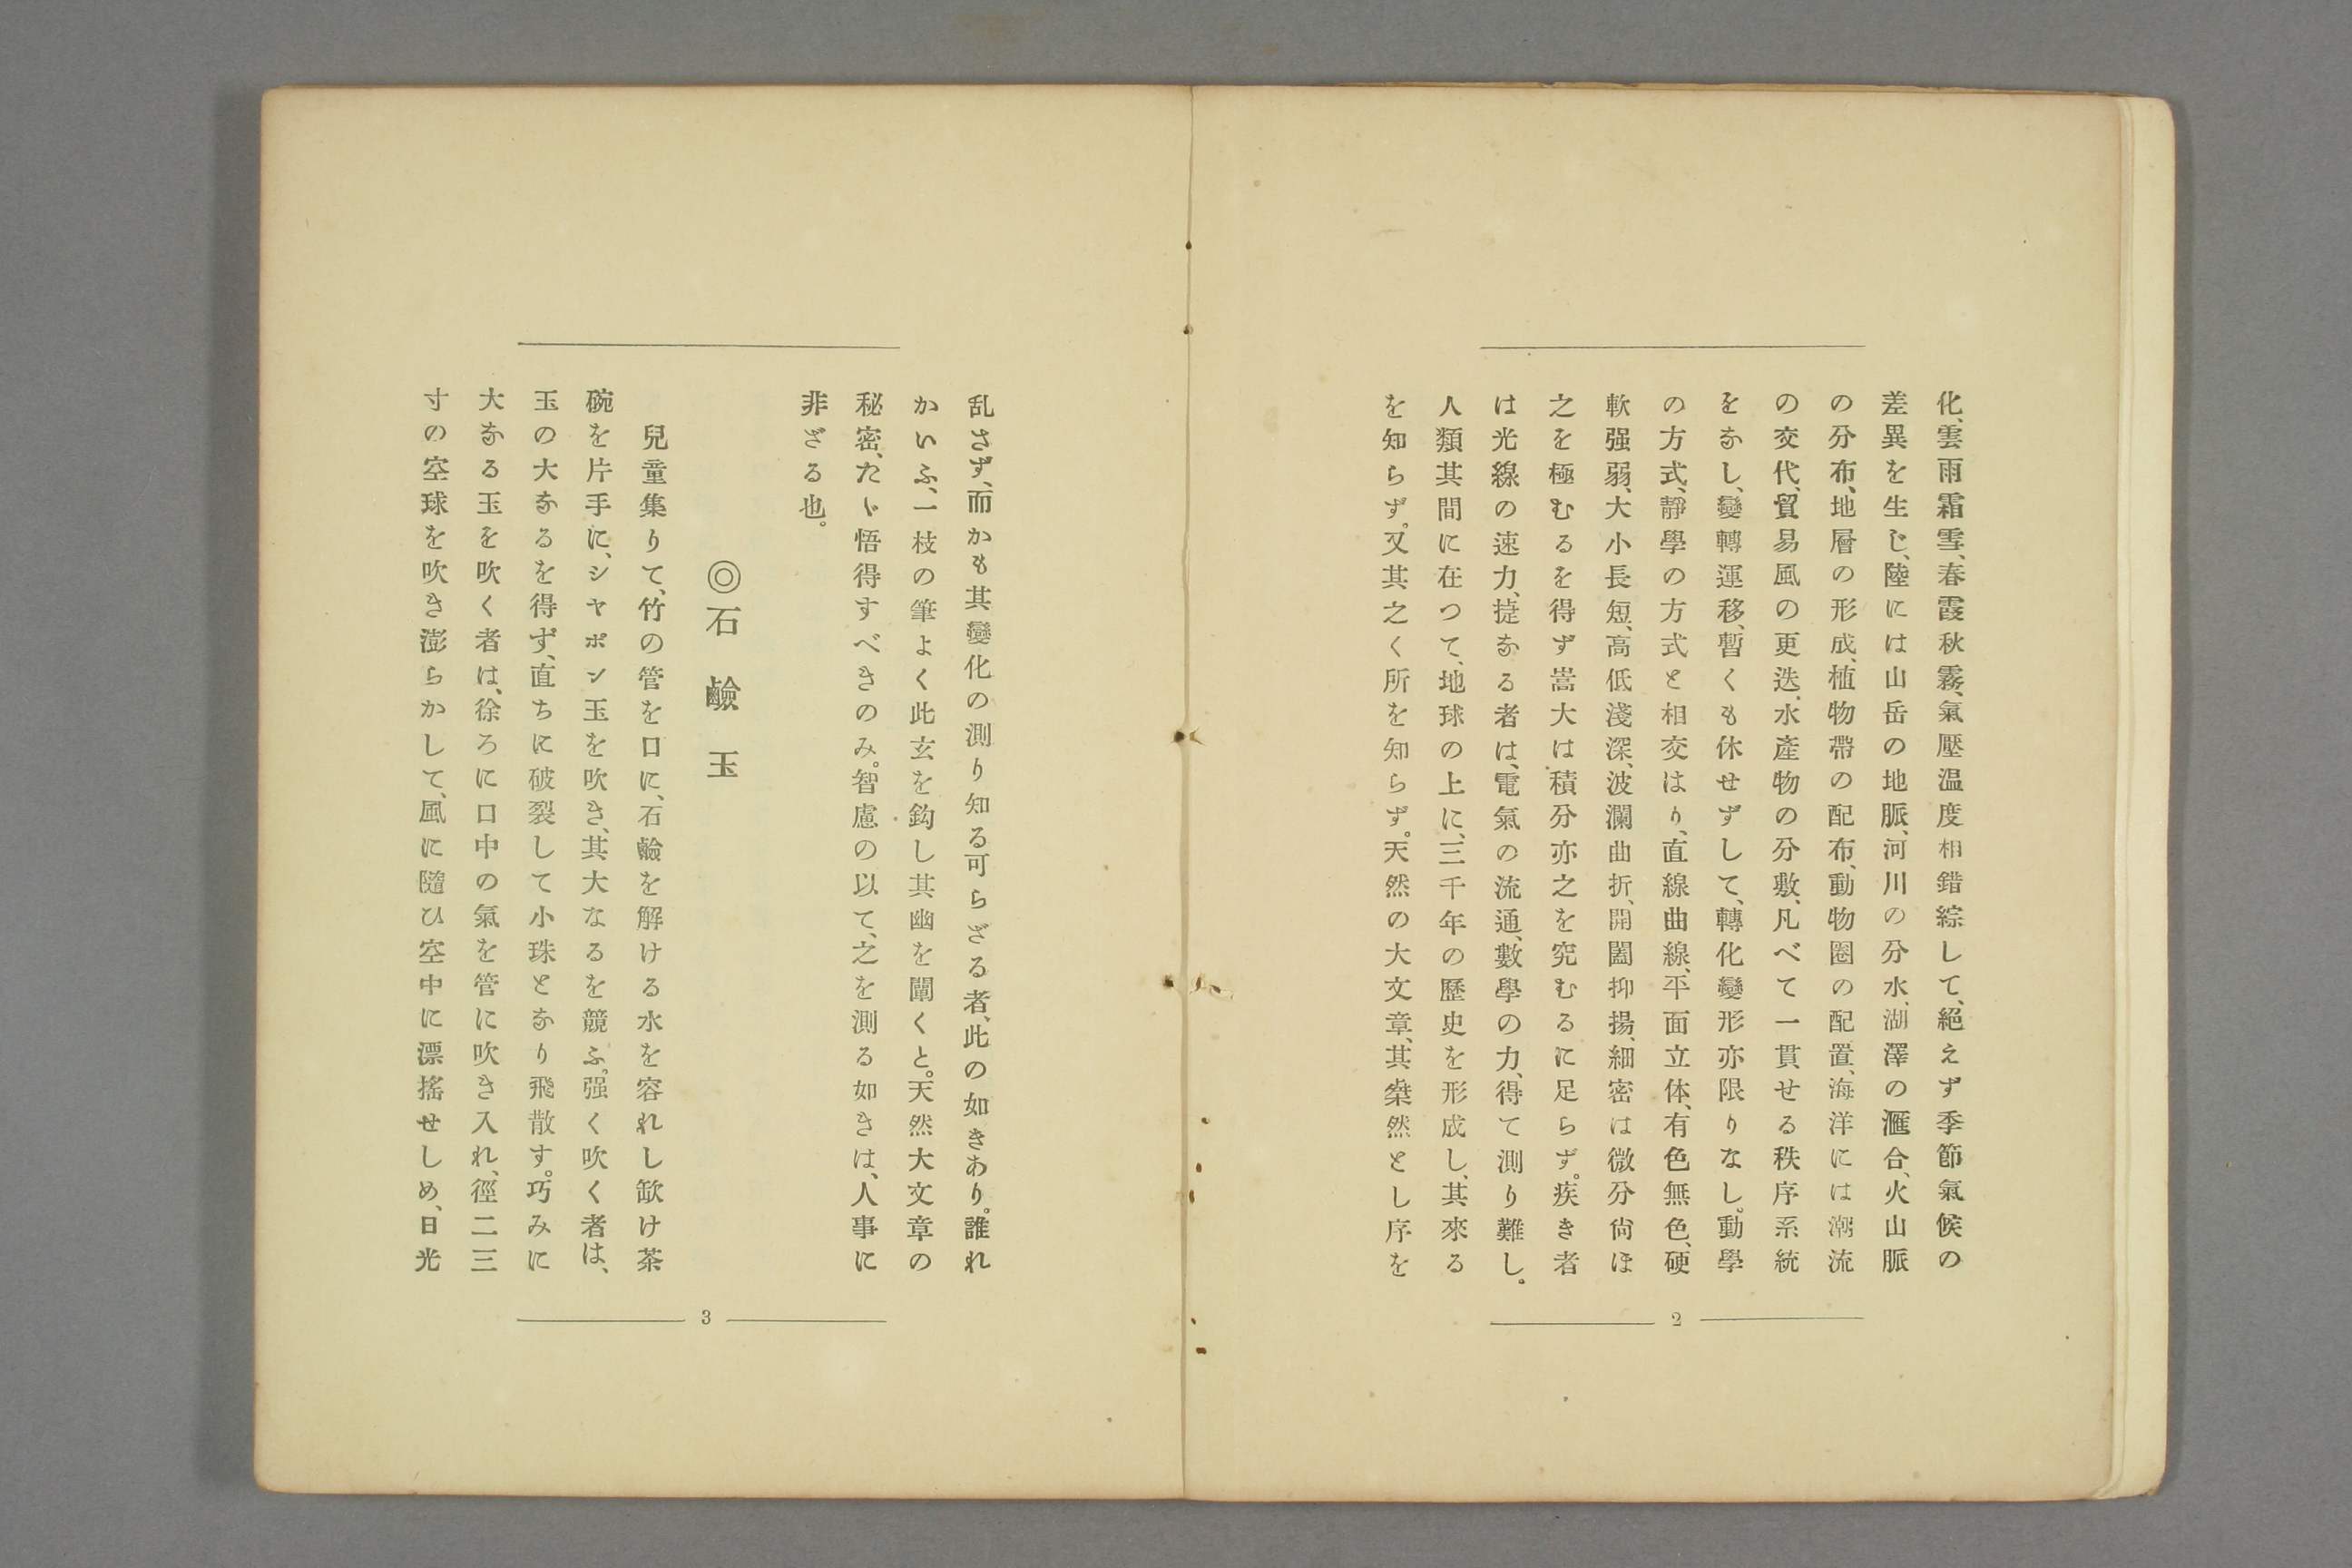 化、雲雨霜雪、春霞秋霧、氣壓温度相錯綜して、絕えず季節氣候の
差異を生じ、陸には山岳の地脈、河川の分水、湖澤の滙合、火山脈
の分布、地層の形成、植物帶の配布、動物圈の配置、海洋には潮流
の交代、貿易風の更迭、水產物の分敷、凡べて一貫せる秩序系統
をなし、變轉運移、暫くも休せずして、轉化變形亦限りなし。動學
の方式、靜學の方式と相交はり、直線曲線、平面立体、有色無色、硬
軟强弱、大小長短、高低淺深、波瀾曲折、開闔抑揚、細密は微分尙ほ
之を極むるを得ず嵩大は積分亦之を究むるに足らず。疾き者
は光線の速力、㨗なる者は、電氣の流通、數學の力、得て測り難し。
人類其間に在つて、地球の上に、三千年の歷史を形成し、其來る
を知らず。又其之く所を知らず。天然の大文章、其粲然とし序を
2
乱さず、而かも其變化の測り知る可らざる者、此の如きあり。誰れ
かいふ、一枝の筆よく此玄を鈎し其幽を闡くと。天然大文章の
秘密、たゞ悟得すべきのみ。智慮の以て、之を測る如きは、人事に
非ざる也。
◎石鹼玉
兒童集りて、竹の管を口に、石鹼を解ける水を容れし缼け茶
碗を片手に、シヤボン玉を吹き、其大なるを競ふ。强く吹く者は、
玉の大なるを得ず、直ちに破裂して小珠となり飛散す。巧みに
大なる玉を吹く者は、徐ろに口中の氣を管に吹き入れ、徑二三
寸の空球を吹き澎らかして、風に隨ひ空中に漂搖せしめ、日光
3